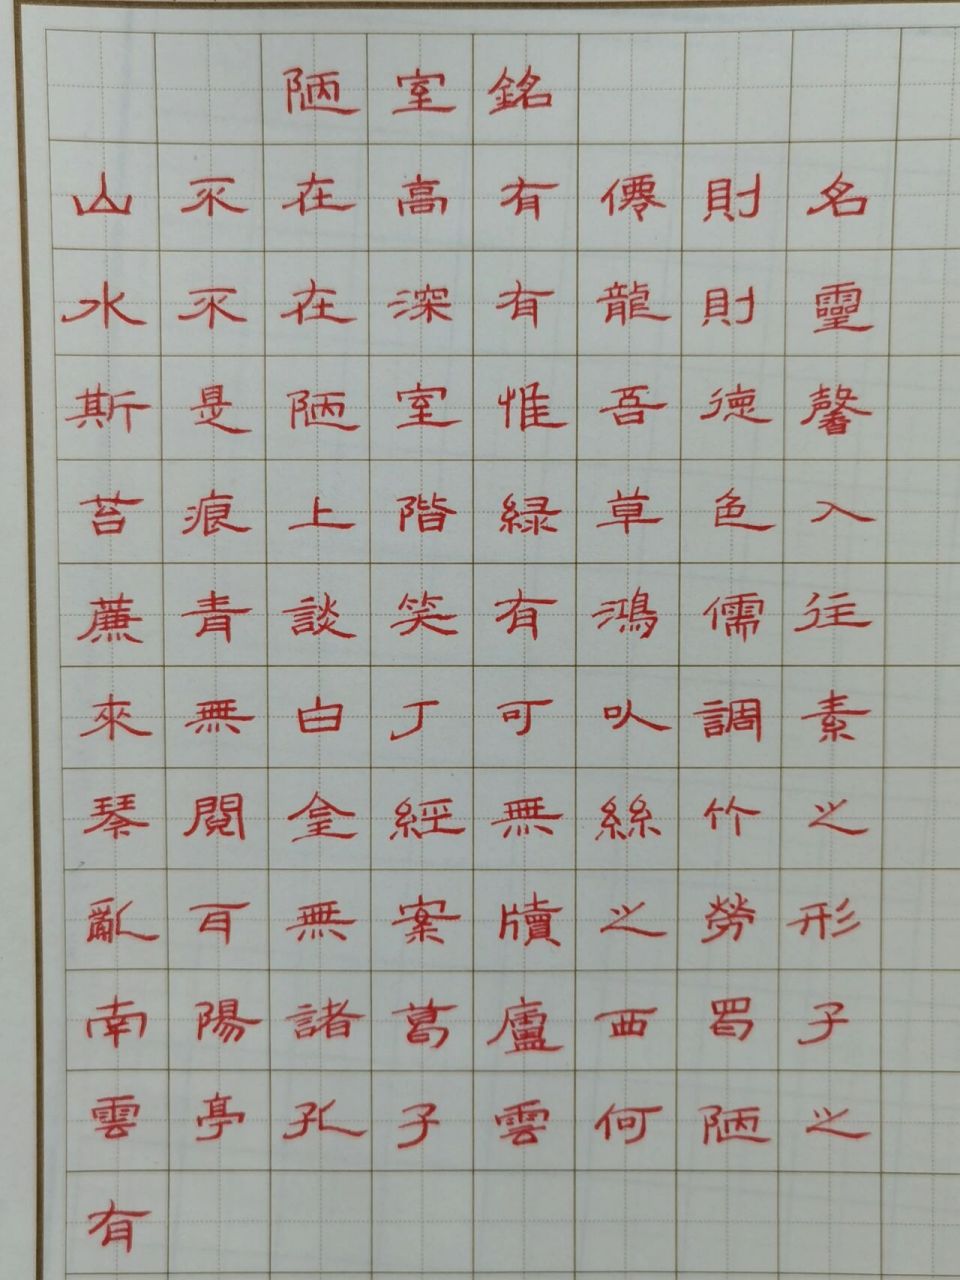 陋室銘
山不在高有僊則名
水不在深有龍則靈
斯是陋室惟吾德馨
苔痕上階緑草色入
薕青談笑有鴻儒往
來無白丁可以調素
琴閱金經無絲竹之
亂耳無案牘之勞形
南陽諸葛廬西蜀子
雲亭孔子雲何陋之
有